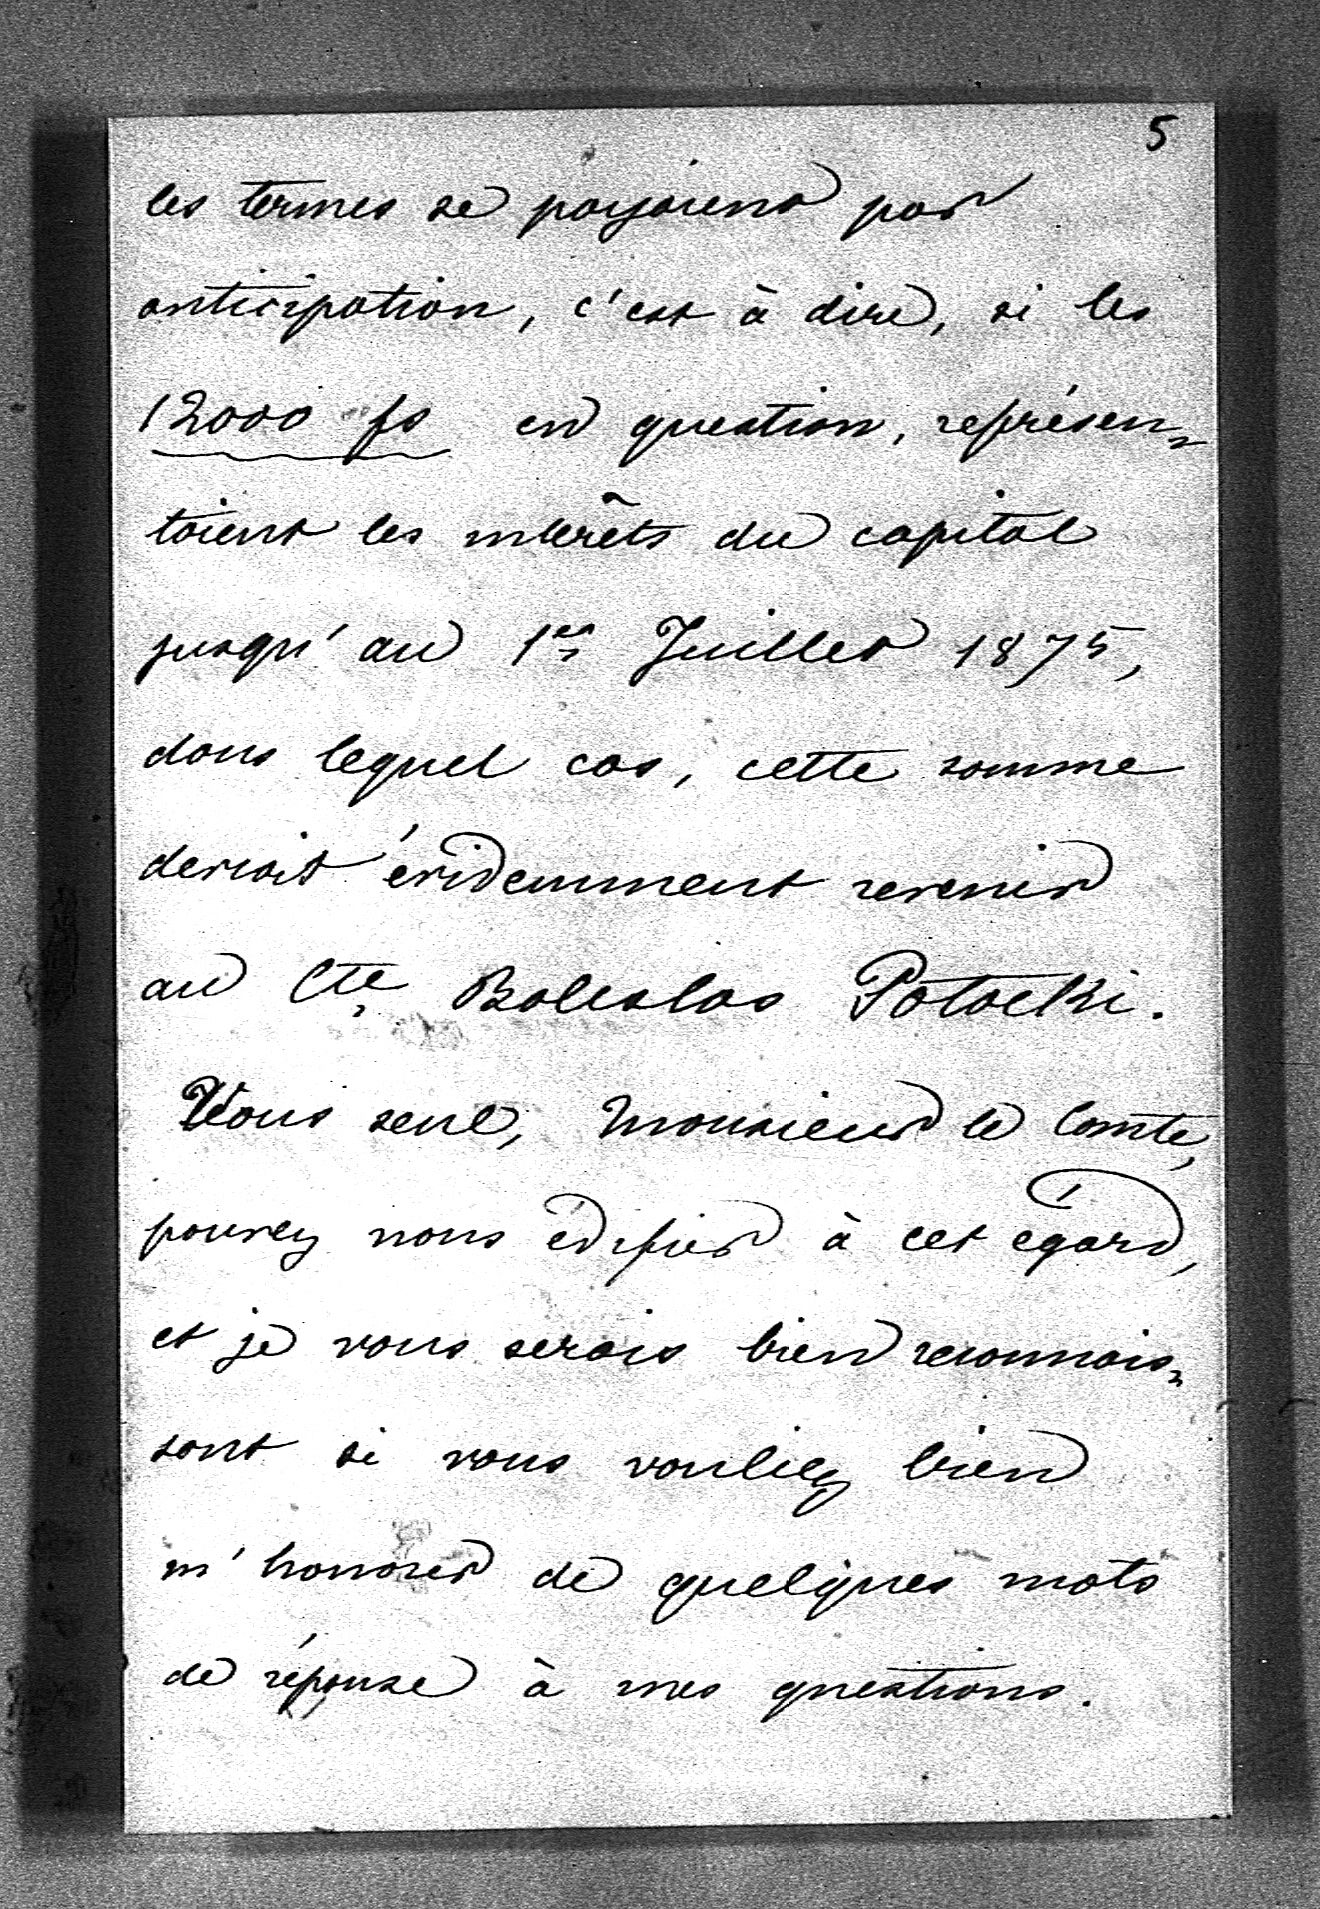 5
les termes se payaient par
anticipation, c'est à dire, si les
12000 fs en question, représen=
taient les intérêts du capital
jusqu'au 1er Juillet 1875,
dans lequel cas, cette somme
devrait évidemment revenir
au Cte Boleslas Potocki.
Vous seul, Monsieur le Comte,
pouvez nous édifier à cet égard,
et je vous serais bien reconnais=
sant si vous vouliez bien
m'honorer de quelques mots
de réponse à mes questions.